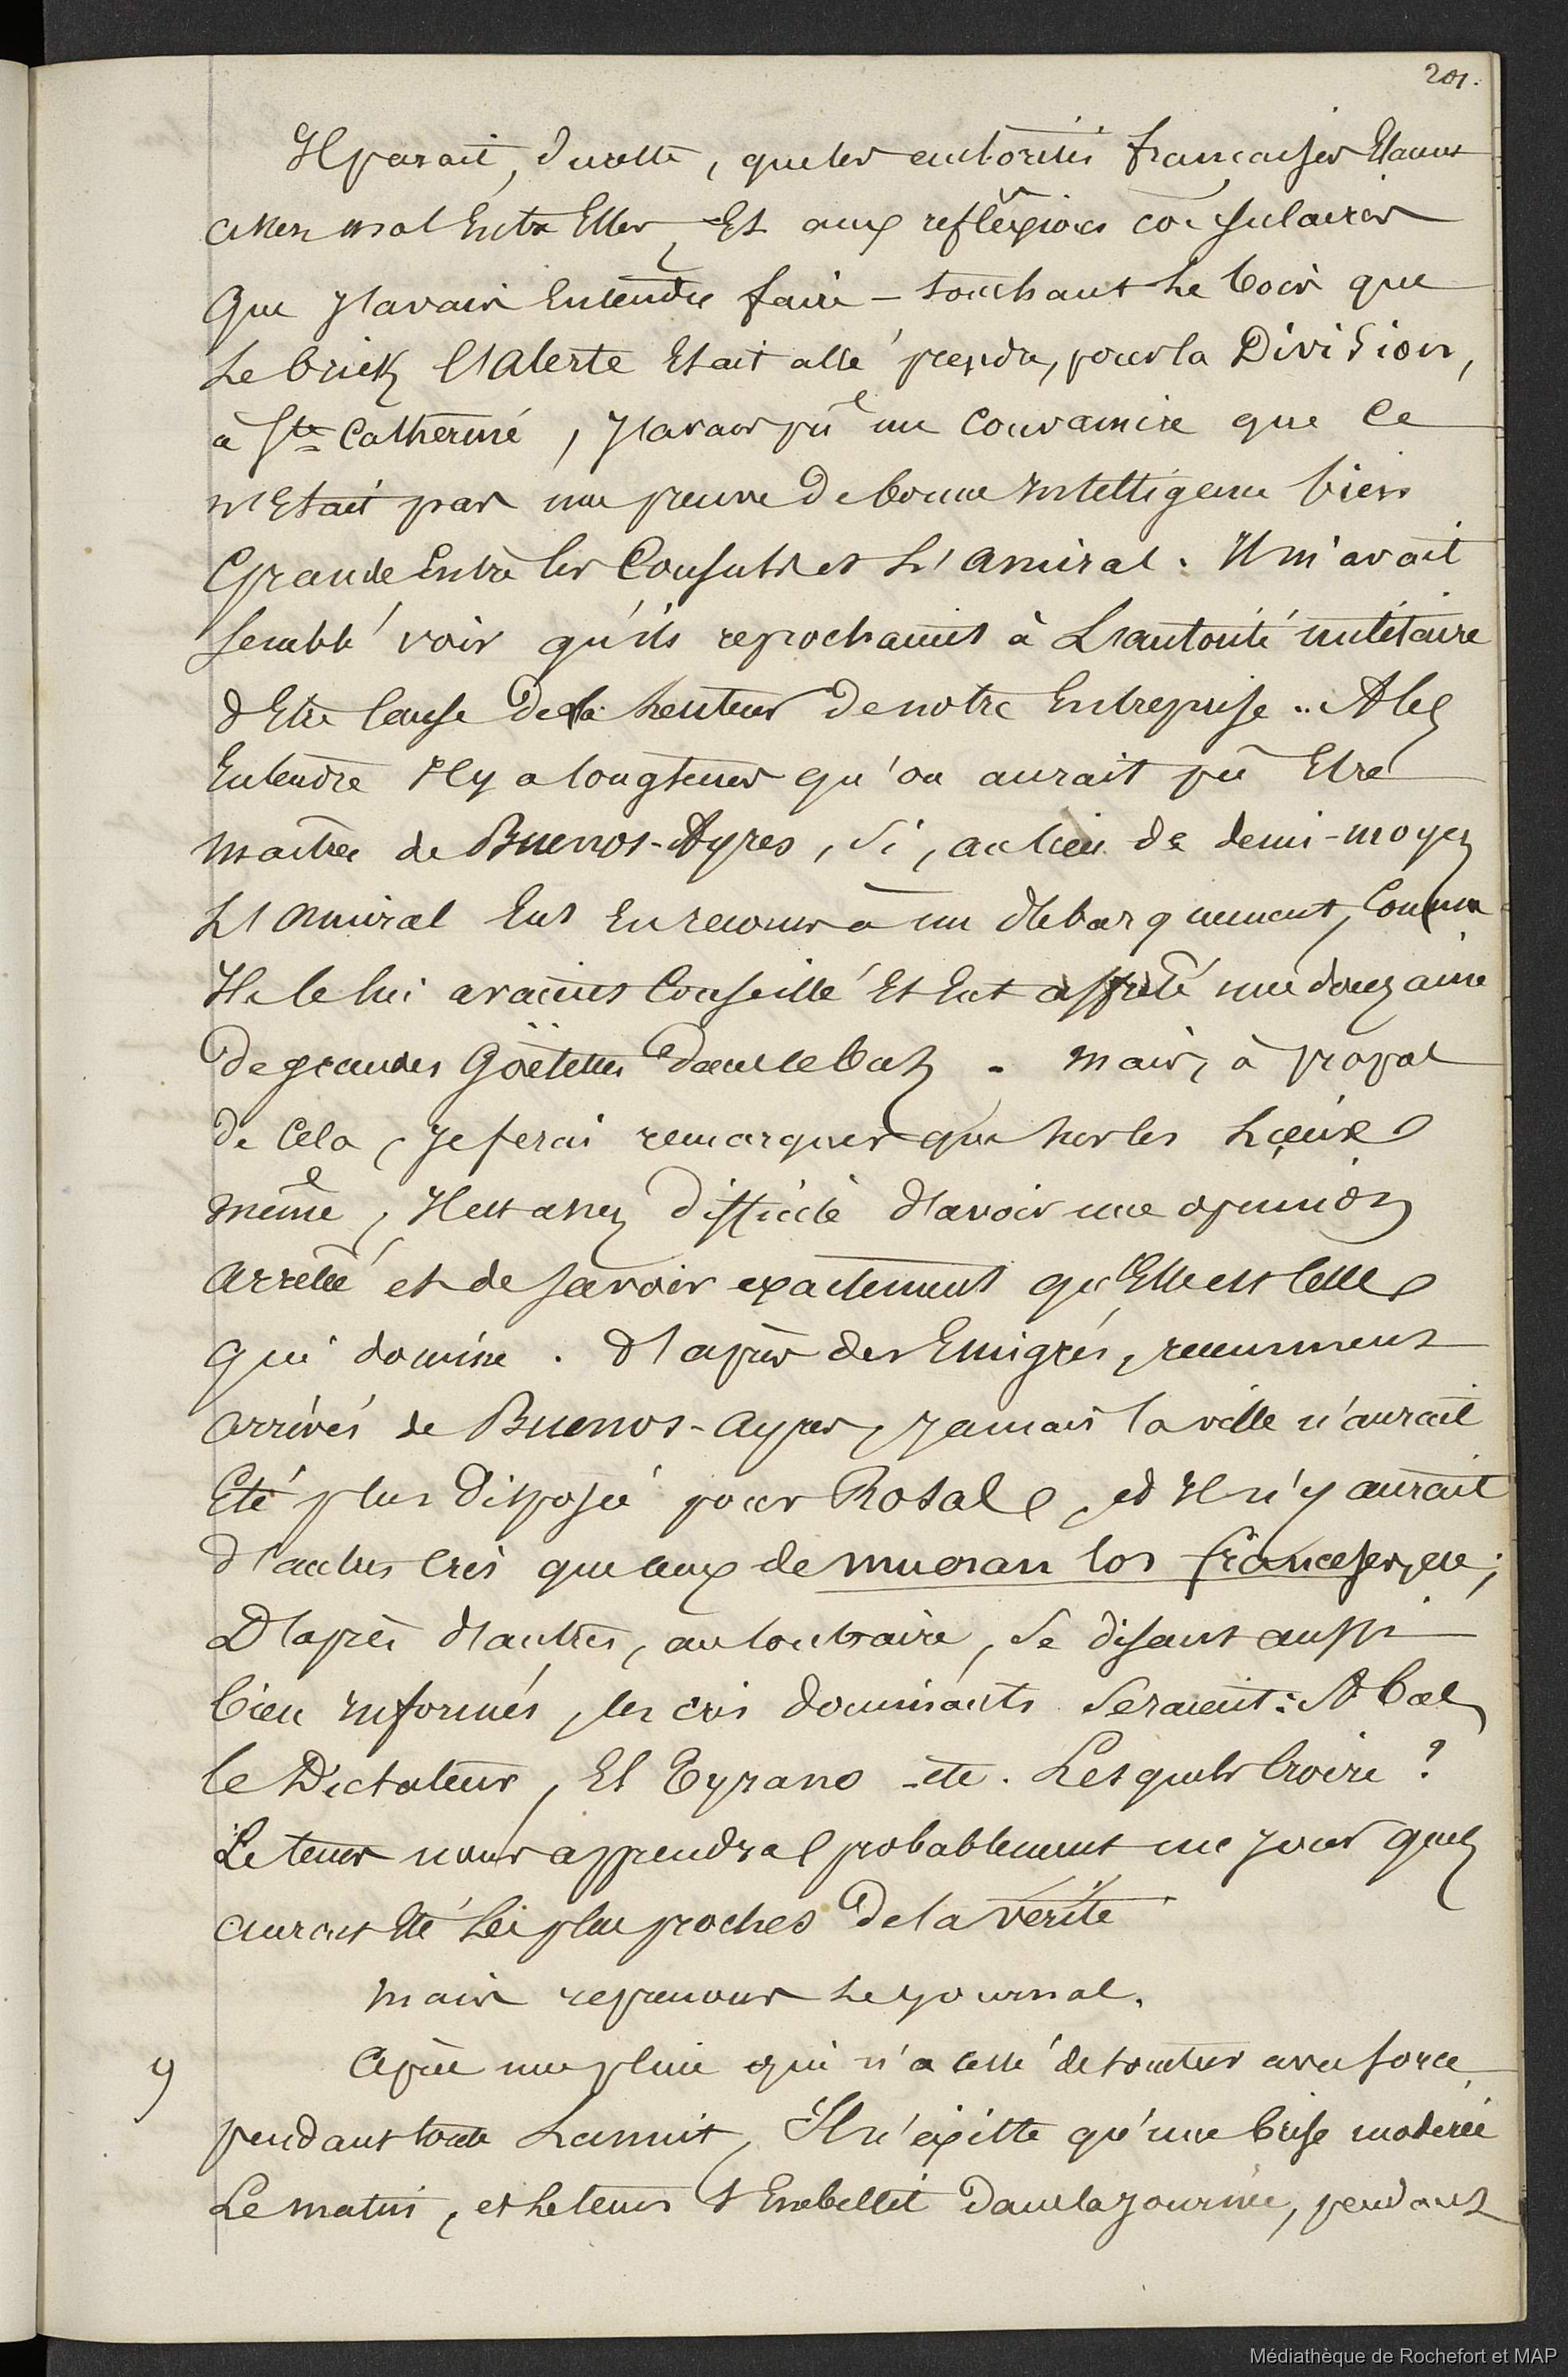 201.
Il parait, du reste, que les autorités françaises Etaient
assez mal Entre Elles, Et aux refléxions consulaires
Que j'avais Entendu faire – touchant Le bois que
Le brick l'Alerte Etait allé prendre, pour la Division,
à Ste Catherine, j'avais pû me convaincre que Ce
n'Etait pas une preuve de bonne Intelligence bien
Grande Entre les Consuls et L'amiral. Il m'avait
semblé voir qu'ils reprochaient à L'autorité militaire
d'Etre Cause de la Lenteur de notre Entreprise.. A les
Entendre Il y a longtems qu'on aurait pû Etre
maitres de Buenos-Ayres, Si, au lieu de demi-moyens
L'Amiral Eut Eu recours à un débarquement, Comme
Ils le lui avaient Conseillé Et Eut affrété une douzaine
de grandes Goëlettes dans le but. Mais, à propos
de Cela, je ferai remarquer que sur les Lieux
même, Il est assez difficile d'avoir une opinion
arrêtée et de savoir exactement qu'Elle est Celle
qui domine. d'après des Emigrés, recemment
arrivés de Buenos-Ayres, jamais la ville n'aurait
Eté plus disposée pour Rosas, et Il n'y aurait
d'autres Cris que ceux de mueran los franceses, etc;
D'après d'autres, au Contraire, Se disant aussi
bien Informés, les cris dominants Seraient: A bas
le Dictateur, El Tyrano -etc. Lesquels Croire?
Le tems nous apprendra probablement un jour quels
auront Eté Les plus proches de la vérité
Mais reprenons Le journal.
9 Après une pluie qui n'a cessé de tomber avec force
pendant toute La nuit, Il n'existe qu'une brise modérée
Le matin, et Le tems s'Embellit dans la journée, pendant
Médiathèque de Rochefort et MAP